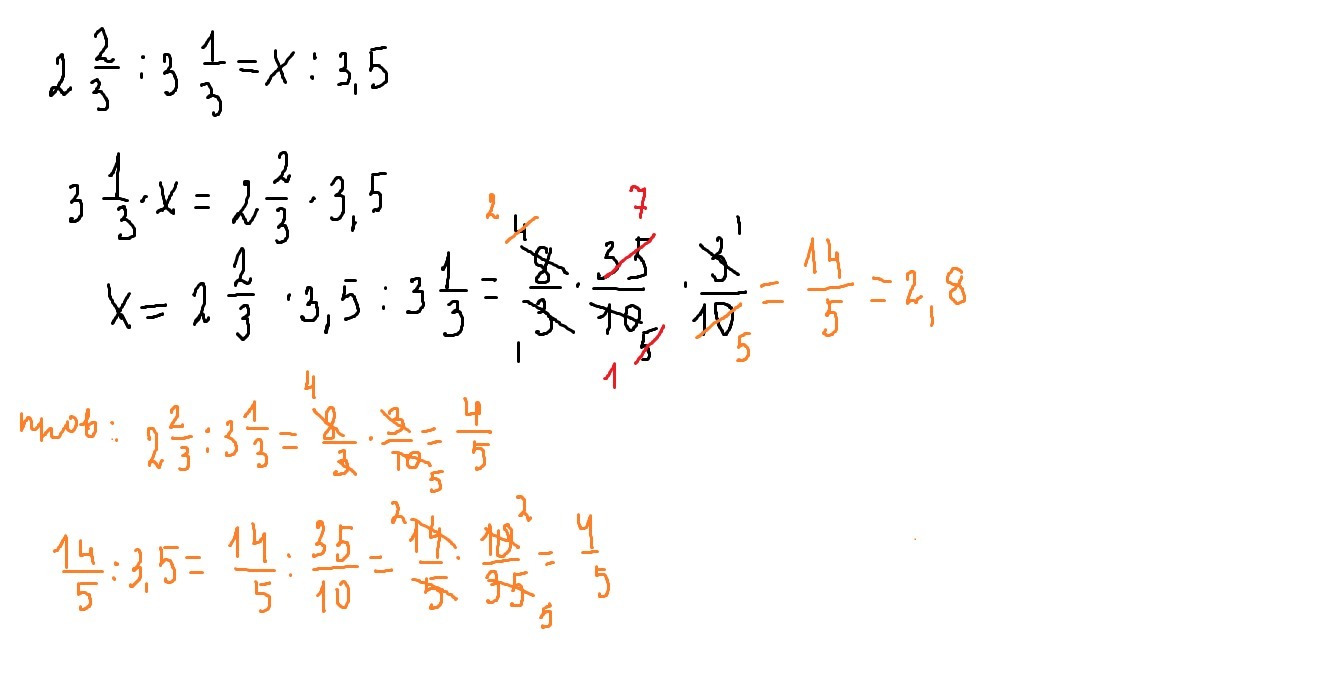 2 2/3 : 3 1/3 = x : 3,5
3 1/3 · x = 2 2/3 · 3,5
x = 2 2/3 · 3,5 : 3 1/3 = 8/3 · 35/10 · 3/10 = 14/5 = 2,8
пров: 2 2/3 : 3 1/3 = 8/3 · 3/10 = 4/5
14/5 : 3,5 = 14/5 : 35/10 = 14/5 · 10/35 = 4/5